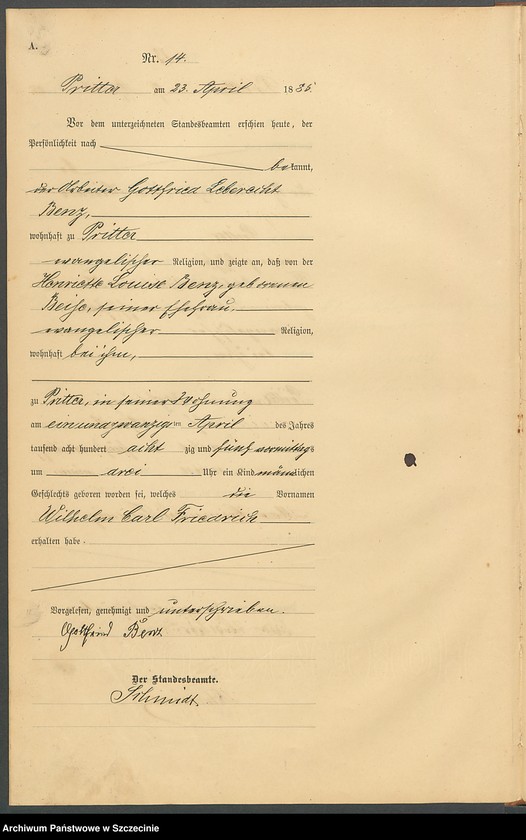 A.
Nr. 14.
Pritter am 23. April 1885.
Vor dem unterzeichneten Standesbeamten erschien heute, der
Persönlichkeit nach
bekannt,
der Arbeiter Gottfried Leberecht
Benz,
wohnhaft zu Pritter
evangelischer Religion, und zeigte an, daß von der
Henriette Louise Benz, geborenen
seiner Ehefrau
evangelischer Religion,
wohnhaft bei ihm,
zu Pritter, in seiner Wohnung
am einundzwanzigsten April des Jahres
tausend acht hundert acht zig und fünf vormittags
um drei Uhr ein Kind männlichen
Geschlechts geboren worden sei, welches die Vornamen
Wilhelm Carl Friedrich
erhalten habe.
Vorgelesen, genehmigt und unterschrieben.
Gottfried Benz
Der Standesbeamte.
Schmidt
Archiwum Państwowe w Szczecinie